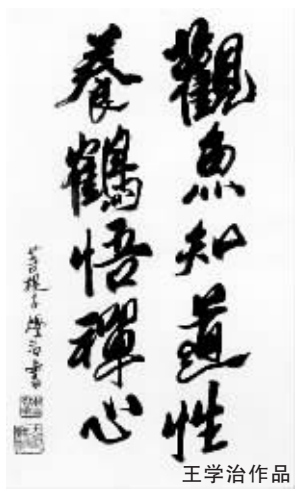 觀魚知道性
養鶴悟禪心
學治書
王学治作品